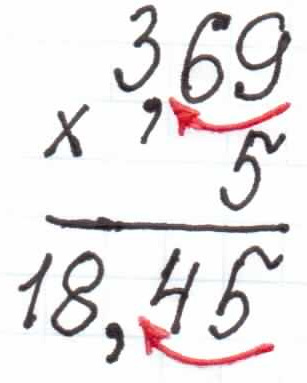 3,69
x 5
18,45